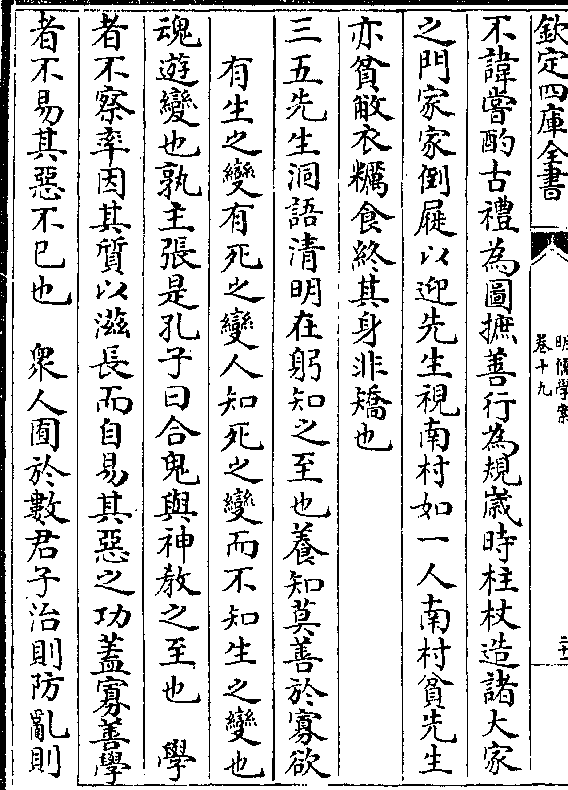 欽定四庫全書
明儒學案
卷十九
不諱嘗酌古禮為圖摭善行為規歲時柱杖造諸大家
之門家家倒屣以迎先生視南村如一人南村貧先生
亦貧敝衣糲食終其身非矯也
三五先生洞語清明在躬知之至也養知莫善於寡欲
有生之變有死之變人知死之變而不知生之變也
魂遊變也孰主張是孔子曰合鬼與神教之至也 學
者不察率因其質以滋長而自易其惡之功蓋寡善學
者不易其惡不已也 衆人囿於數君子治則防亂則